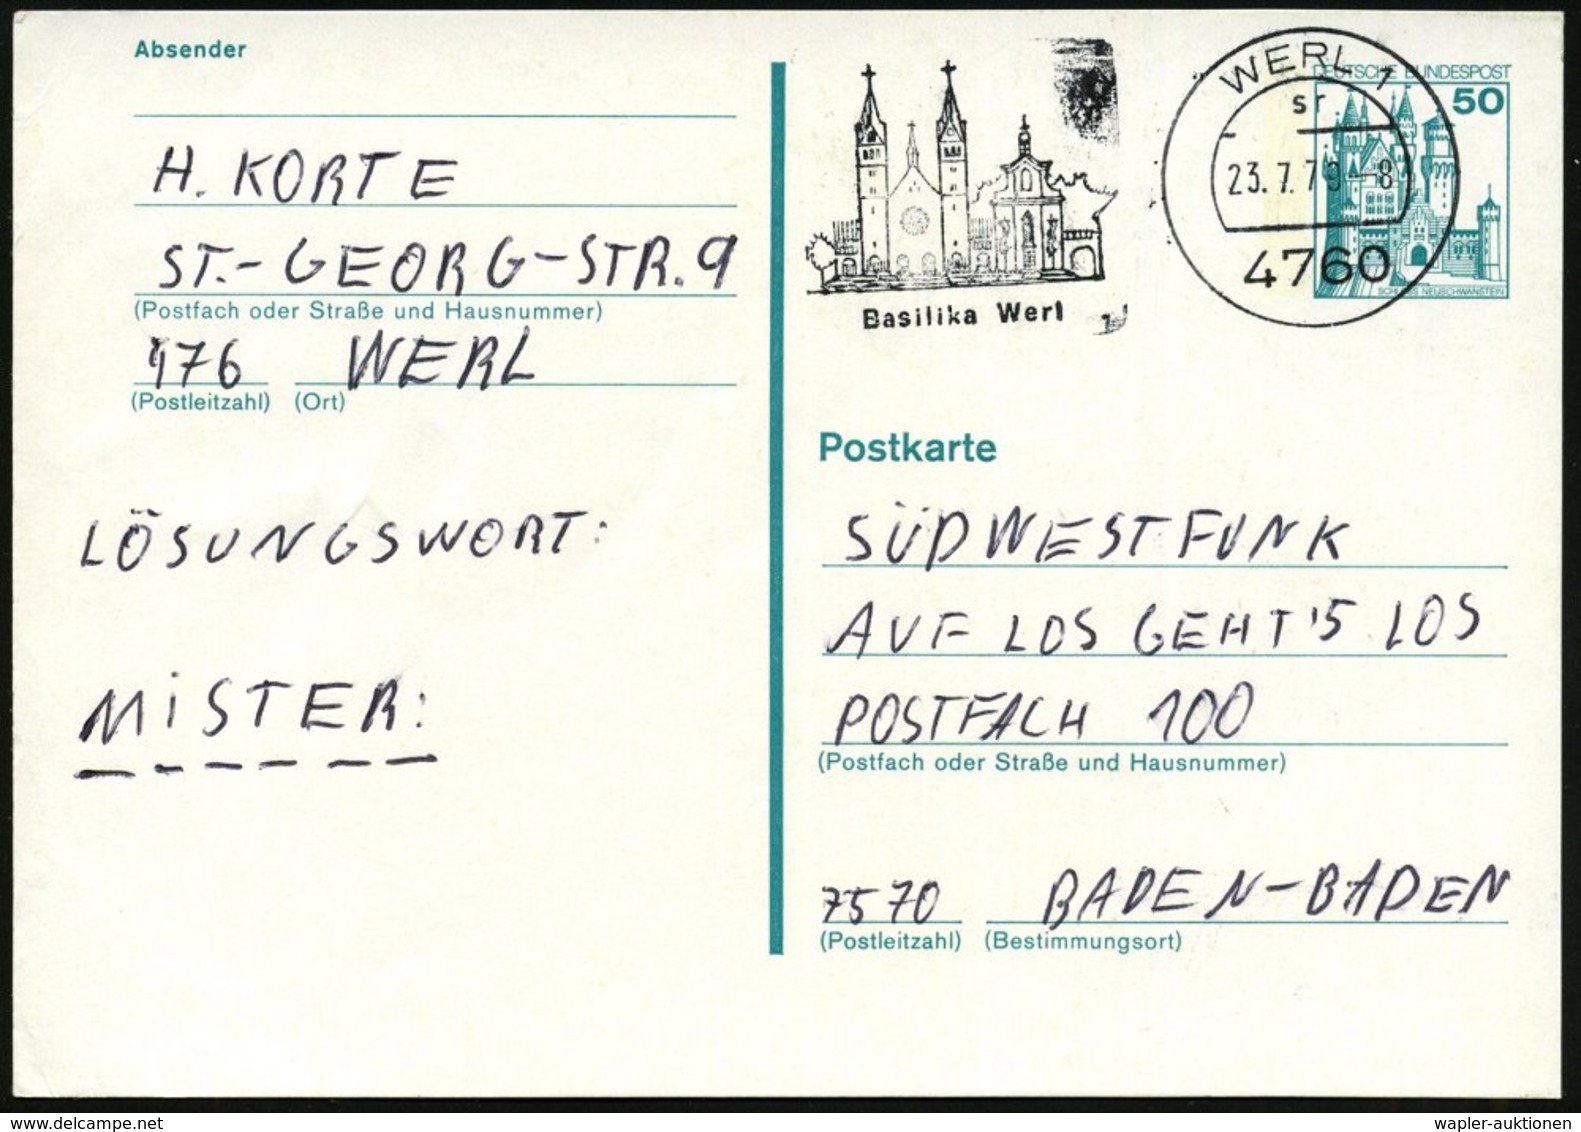 Absender
H. KORTE
ST.-GEORG-STR. 9
(Postfach oder Straße und Hausnummer)
476 WERL
(Postleitzahl) (Ort)
LÖSUNGSWORT:
MiSTER:
Basilika Werl
WERL 1
sr
23.7.79-8
4760
DEUTSCHE BUNDESPOST
50
SCHLOSS NEUSCHWANSTEIN
Postkarte
SÜDWESTFUNK
AUF LOS GEHT'S LOS
POSTFACH 100
(Postfach oder Straße und Hausnummer)
7570 BADEN-BADEN
(Postleitzahl) (Bestimmungsort)
www.delcampe.net
wapler-auktionen